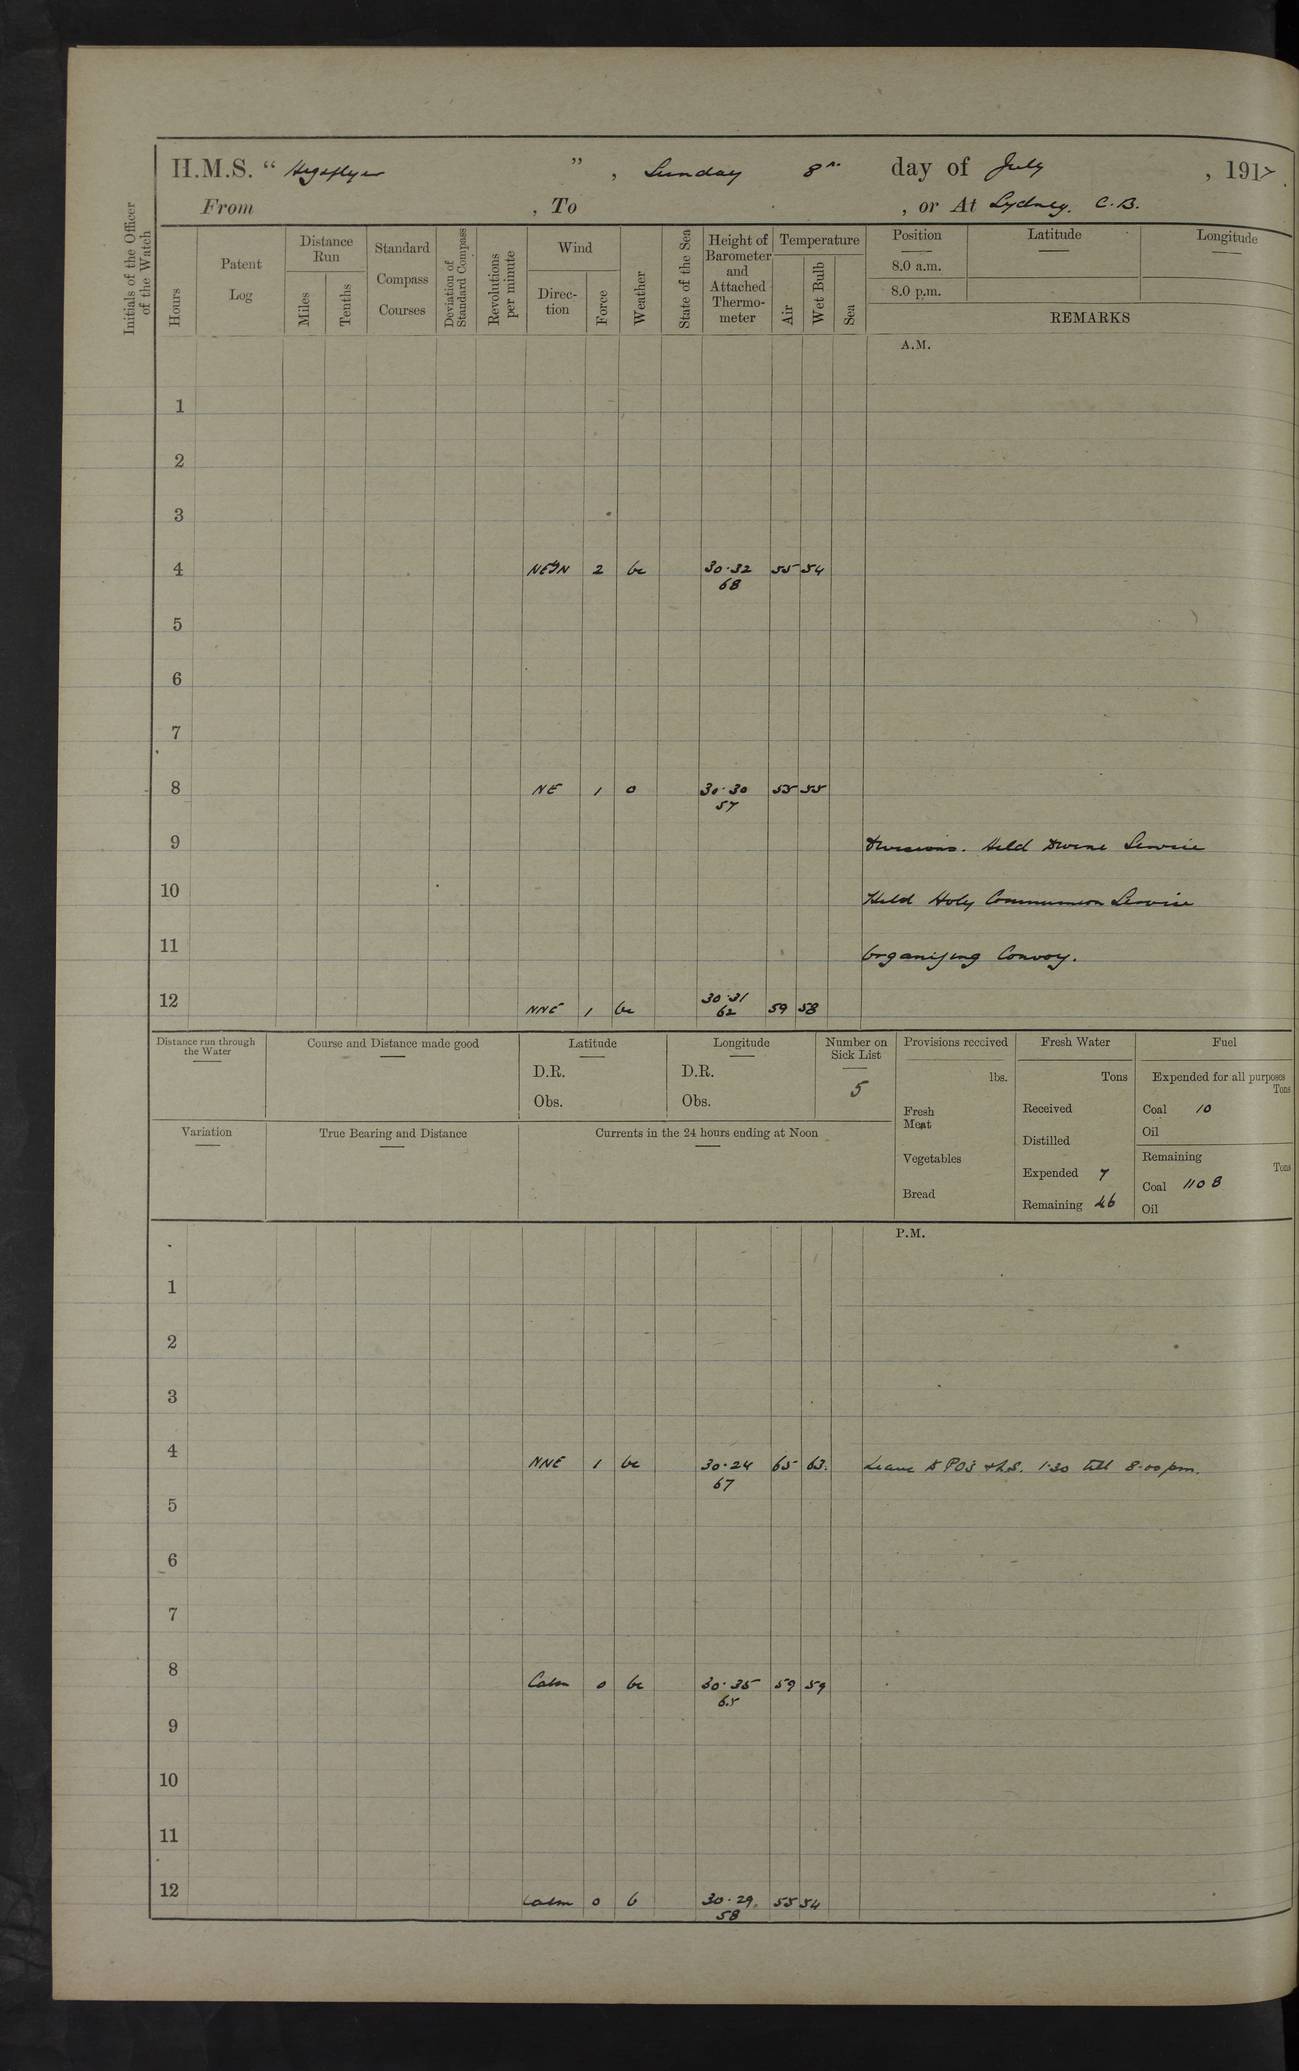 H.M.S. “ Highflyer ” , Sunday 8th day of July , 1917
From , To , or At Sydney. C.B.
Initials of the Officer of the Watch
Hours
Patent Log
Distance Run
Miles
Tenths
Standard Compass Courses
Deviation of Standard Compass
Revolutions per minute
Wind
Direc-tion
Force
Weather
State of the Sea
Height of Barometer and Attached Thermo-meter
Temperature
Air
Wet Bulb
Sea
Position
Latitude
Longitude
8.0 a.m.
8.0 p.m.
REMARKS
A.M.
1
2
3
4 NEbyN 2 bc 30.32 55 54
68
5
6
7
8 NE 1 o 30.30 55 55
57
9 Divisions. Held Divine Service
10 Held Holy Communion Service
11 Organising Convoy.
12 NNE 1 bc 30.31 59 58
62
Distance run through the Water
Course and Distance made good
Latitude
D.R.
Obs.
Longitude
D.R.
Obs.
Number on Sick List
5
Provisions received
lbs.
Fresh Meat
Vegetables
Bread
Fresh Water
Tons
Received
Distilled
Expended 7
Remaining 46
Fuel
Expended for all purposes
Tons
Coal 10
Oil
Remaining
Tons
Coal 1108
Oil
Variation
True Bearing and Distance
Currents in the 24 hours ending at Noon
P.M.
1
2
3
4 NNE 1 bc 30.24 65 63. Leave to POs & L.S. 1.30 till 8.00 pm.
67
5
6
7
8 Calm 0 bc 30.35 59 59
65
9
10
11
12 Calm 0 b 30.29. 55 54
58